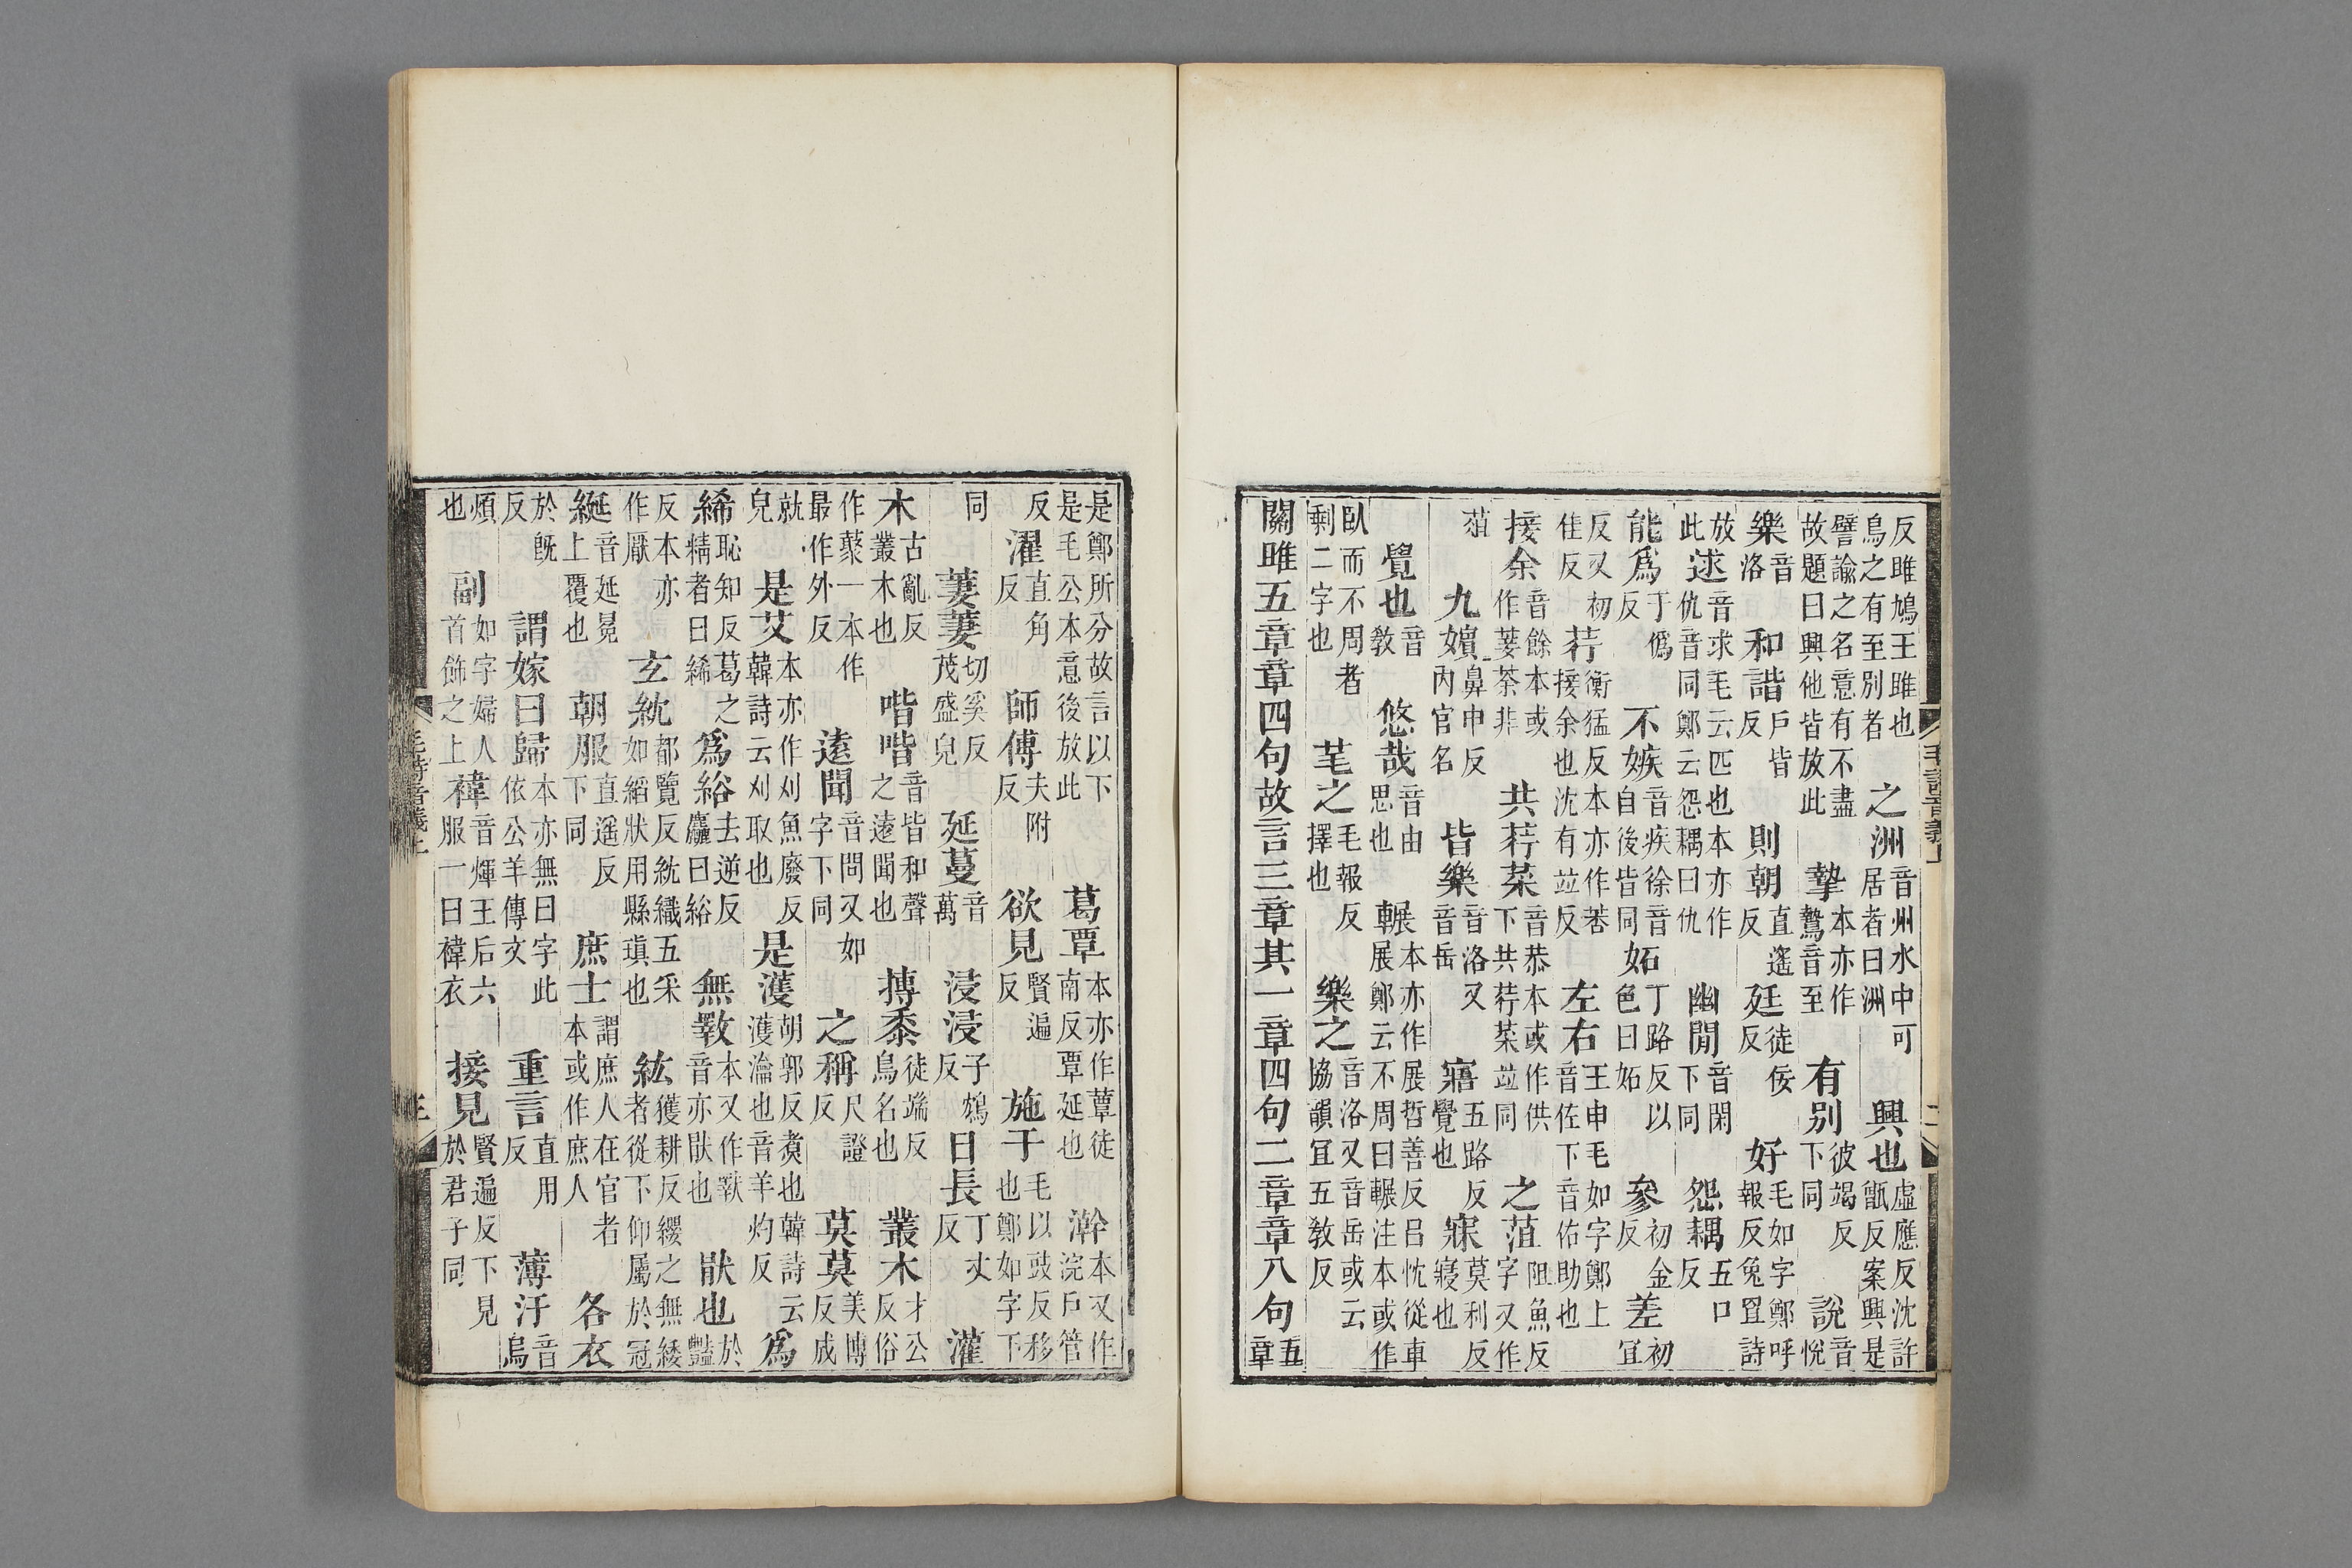 反雎鳩王雎也
鳥之有至別者
之洲
音州水中可
居者曰洲
興也
虛應反沈許
甑反案興是
譬諭之名意有不盡
故題曰興他皆放此
摯
本亦作
鷙音至
有別
彼竭反
下同
說
音
悅
樂
音
洛
和諧
戶皆
反
則朝
直遙
反
廷
徒佞
反
好
毛如字鄭呼
報反兔罝詩
放
此
逑
音求毛云匹也本亦作
仇音同鄭云怨耦曰仇
幽閒
音閑
下同
怨耦
五口
反
能爲
于僞
反
不嫉
音疾徐音
自後皆同
妬
丁路反以
色曰妬
參
初金
反
差
初
宜
反又初
佳反
荇
衡猛反本亦作莕
接余也沈有竝反
左右
王申毛如字鄭上
音佐下音佑助也
接余
音餘本或
作菨荼非
共荇菜
音恭本或作供
下共荇菜竝同
之菹
阻魚反
字又作
葅
九嬪
鼻申反
內官名
皆樂
音洛又
音岳
寤
五路反
覺也
寐
莫利反
寢也
覺也
音
教
悠哉
音由
思也
輾
本亦作展哲善反呂忱從車
展鄭云不周曰輾注本或作
臥而不周者
剩二字也
芼之
毛報反
擇也
樂之
音洛又音岳或云
協韻宜五教反
關雎五章章四句故言三章其一章四句二章章八句
五
章
毛詩音義上
是鄭所分故言以下
是毛公本意後放此
葛覃
本亦作蕈徒
南反覃延也
澣
本又作
浣戶管
反
濯
直角
反
師傅
夫附
反
欲見
賢遍
反
施于
毛以豉反移
也鄭如字下
同
萋萋
切奚反
茂盛皃
延蔓
音
萬
浸浸
子鴆
反
日長
丁丈
反
灌
木
古亂反
叢木也
喈喈
音皆和聲
之遠聞也
摶黍
徒端反
鳥名也
叢木
才公
反俗
作藂一本作
最作外反
遠聞
音問又如
字下同
之稱
尺證
反
莫莫
美博
反成
就
皃
是艾
本亦作刈魚廢反
韓詩云刈取也
是濩
胡郭反煑也韓詩云
濩瀹也音羊灼反
爲
絺
恥知反葛之
精者曰絺
爲綌
去逆反
麤曰綌
無斁
本又作𢾾
音亦猒也
猒也
於
豔
反本亦
作厭
玄紞
都覽反紞織五采
如縚狀用縣瑱也
紘
獲耕反纓之無緌
者從下仰屬於冠
綖
延音延冕
上覆也
朝服
直遙反
下同
庶士
謂庶人在官者
本或作庶人
各衣
於旣
反
謂嫁曰歸
本亦無曰字此
依公羊傳文
重言
直用
反
薄汙
音
烏
煩
也
副
如字婦人
首飾之上
褘
音煇王后六
服一曰褘衣
接見
賢遍反下見
於君子同